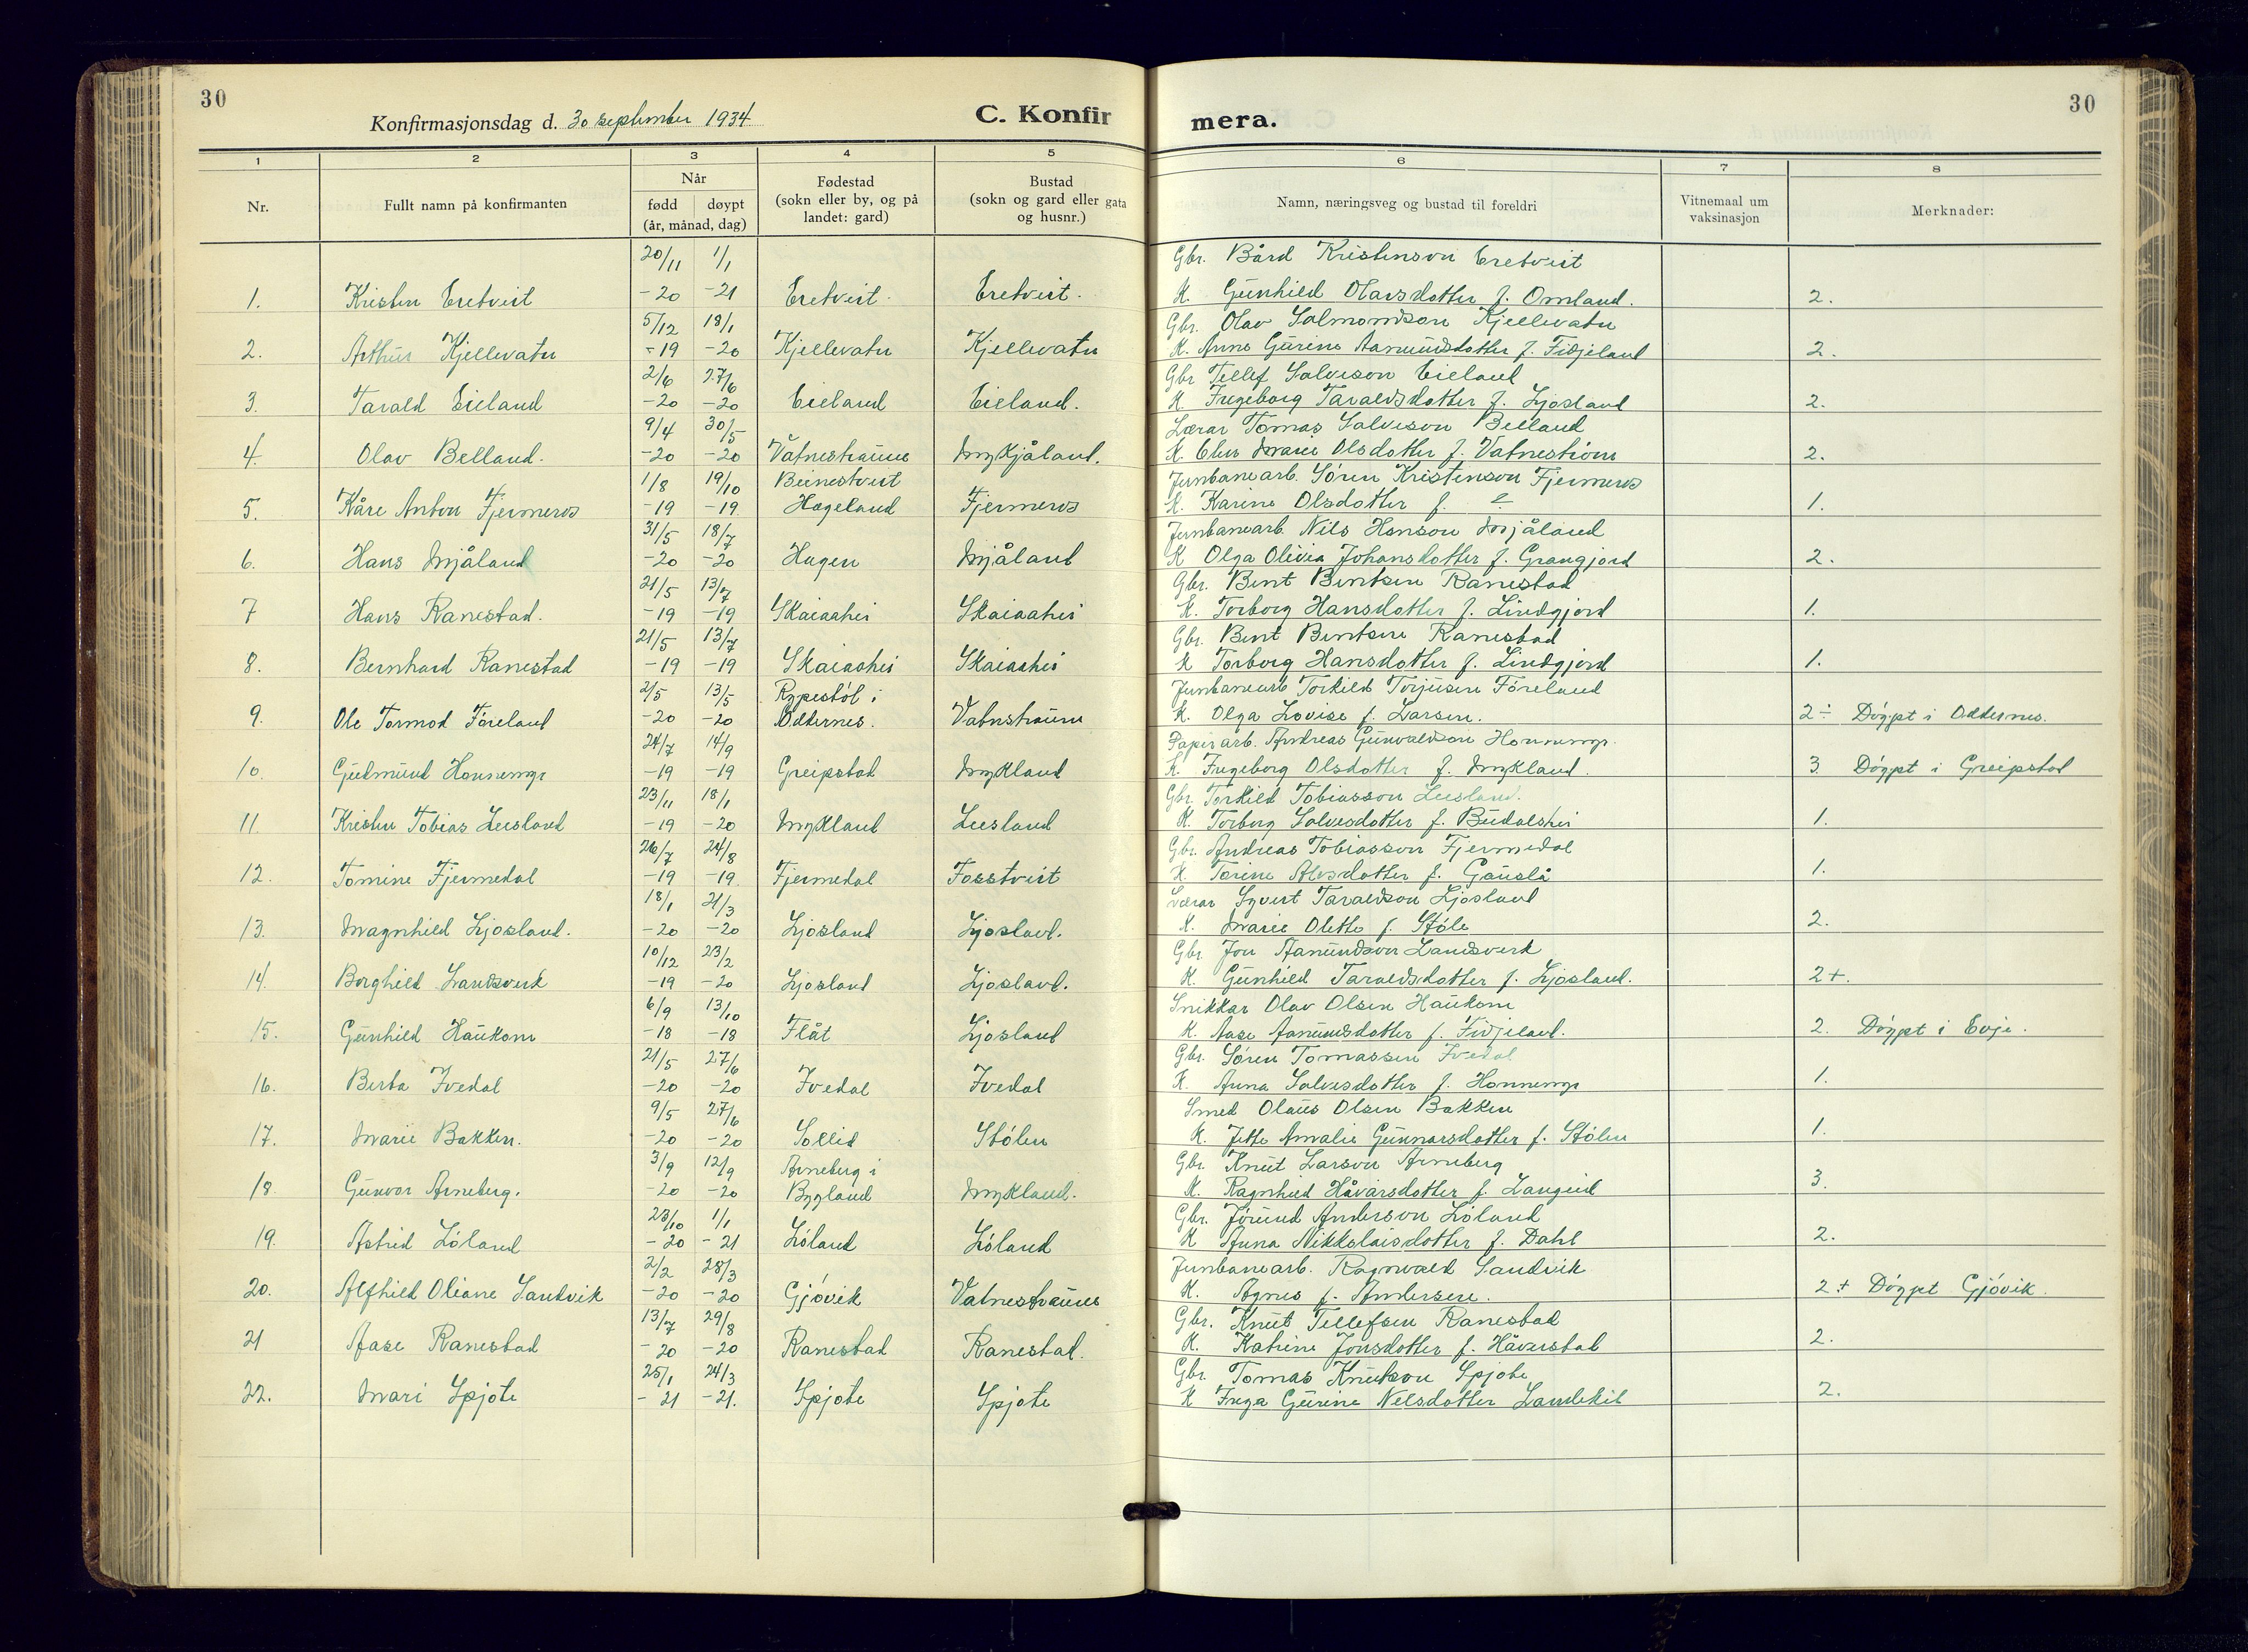 30
Konfirmasjonsdag d. 30 september 1934.
C. Konfir
mera.
30
1 2 3 4 5 6 7 8
Nr.
Fullt namn på konfirmanten
Når
fødd døypt
(år, månad, dag)
Fødestad
(sokn eller by, og på
landet: gard)
Bustad
(sokn og gard eller gata
og husnr.)
Namn, næringsveg og bustad til foreldri
Vitnemaal um
vaksinasjon
Merknader:
20/11 1/1 Gbr. Bård Kristenson Eretveit
1. Kristen Eretveit -20 -21 Eretveit. Eretveit. K. Gunhild Olavsdotter f. Omland. 2.
5/12 18/1 Gbr. Olav Salmondson Kjellevatn
2. Arthur Kjellevatn -19 -20 Kjellevatn Kjellevatn K. Anne Gurine Aamundsdotter f. Fidjeland 2.
2/6 27/6 Gbr Tellef Salveson Eieland
3. Tarald Eieland -20 -20 Eieland Eieland. K. Ingeborg Taraldsdotter f. Ljosland 2.
9/4 30/5 Lærar Tomas Salveson Belland
4. Olav Belland. -20 -20 Vatnestraume Mykjåland. K. Marie Olsdotter f. Vatnestrøm 2.
1/8 19/10 Beinestveit Jernbanearb. Søren Kristenson Fjermeros
5. Kåre Anton Fjermeros -19 -19 Hægeland Fjermeros K. Karine Olsdotter f. 1.
31/5 18/7 Jernbanearb. Nils Hanson Mjåland
6. Hans Mjåland -20 -20 Hagen Mjåland K Olga Olivia Johansdotter f. Grangjord 2.
21/5 13/7 Gbr. Bent Bentsen Ranestad
7 Hans Ranestad. -19 -19 Skaiaahei Skaiaahei K. Torborg Hansdotter f. Lindgjord 1.
21/5 13/7 Gbr. Bent Bentsen Ranestad
8. Bernhard Ranestad -19 -19 Skaiaahei Skaiaahei K Torborg Hansdotter f. Lindgjord 1.
2/5 13/5 Rypestøl i Jernbanearb Torkild Torjusen Føreland
9. Ole Tormod Føreland -20 -20 Oddernes. Vatnstraum K. Olga Lovise f. Larsen. 2÷ Døypt i Oddernes.
24/7 14/9 Papirarb. Andreas Gunvaldson Honnemyr.
10. Gudmund Honnemyr -19 -19 Greipstad Mykland K. Ingeborg Olsdotter f. Mykland. 3. Døypt i Greipstad
23/11 18/1 Gbr. Torkild Tobiasson Leesland.
11. Kristen Tobias Leesland -19 -20 Mykland Leesland K. Torborg Salvesdotter f. Budalshei 1.
26/7 24/8 Gbr. Andreas Tobiasson Fjermedal
12. Tomine Fjermedal -19 -19. Fjermedal Fosstveit K. Torine Alvsdotter f. Gauslå 1.
18/1 21/3 Lærar Syvert Taraldson Ljosland
13. Magnhild Ljosland. -20 -20 Ljosland Ljosland. K. Marie Olette f. Støle 2.
10/12 23/2 Gbr. Jon Aamundson Landsverk
14. Borghild Landsverk -19 -20 Ljosland Ljosland. K. Gunhild Taraldsdotter f. Ljosland. 2+.
6/9 13/10 Snikkar Olav Olsen Haukom
15. Gunhild Haukom -18 -18 Flåt Ljosland K. Aase Aamundsdotter f. Fidjeland. 2. Døypt i Evje.
21/5 27/6 Gbr. Søren Tomassen Ivedal
16. Berta Ivedal -20 -20 Ivedal Ivedal K. Anna Salvesdotter f. Honnemyr 1.
9/5 27/6 Smed Olaus Olsen Bakken
17. Marie Bakken. -20 -20 Sollid Stølen K. Jette Amalie Gunnarsdotter f. Stølen 1.
3/9 12/9 Arneberg i Gbr. Knut Larson Arneberg
18. Gunvor Arneberg. -20 -20 Bygland Mykland. K. Ragnhild Håvarsdotter f. Langeid 3.
23/10 1/1 Gbr. Jørund Anderson Løland
19. Astrid Løland -20 -21 Løland Løland K Anna Nikkolaisdotter f. Dahl 2.
2/2 28/3 Jernbanearb. Ragnvald Sandvik
20. Alfhild Oliane Sandvik -20 -20 Gjøvik Vatnestraume K. Agnes f. Andersen. 2+ Døypt Gjøvik.
13/7 29/8 Gbr. Knut Tellefsen Ranestad
21 Aase Ranestad -20 -20 Ranestad Ranestad. K. Katrine Jonsdotter f. Håverstad 2.
25/1 24/3 Gbr. Tomas Knutson Spjote
22. Mari Spjote -21 -21. Spjote Spjote K Inga Gurine Nelsdotter Landekil 2.